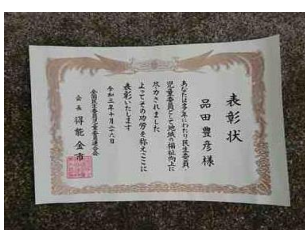 表彰状
品田豊彦様
あなたは多年にわたり民生委員、
児童委員として地域の福祉向上に
尽力されました
よってその功労を称えここに
表彰いたします
令和三年十月二十八日
全国民生委員児童委員連合会
会長 得能金市